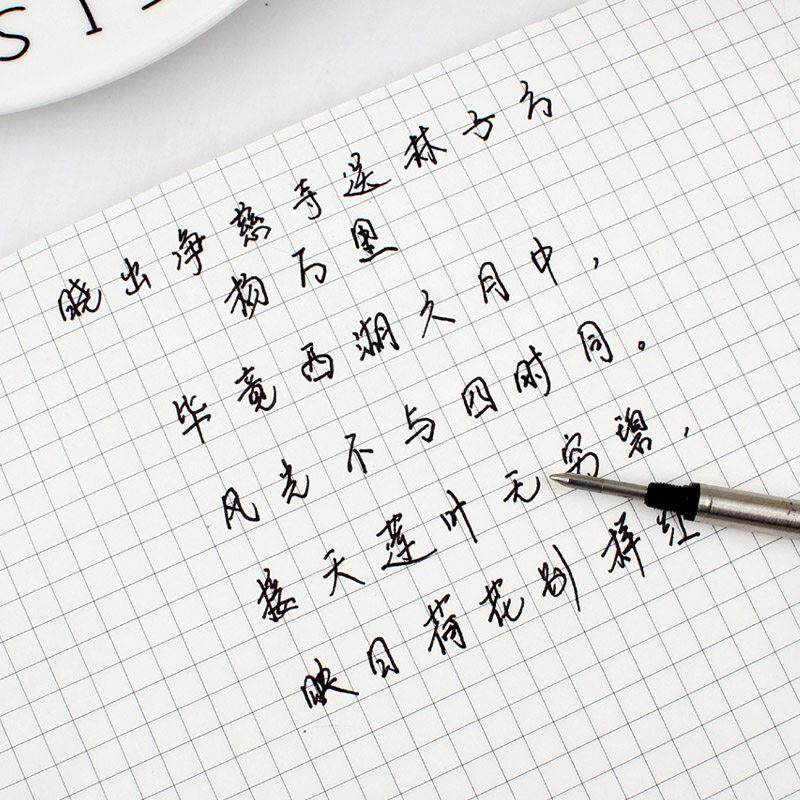 晓出净慈寺送林子方
杨万里
毕竟西湖六月中,
风光不与四时同。
接天莲叶无穷碧,
映日荷花别样红